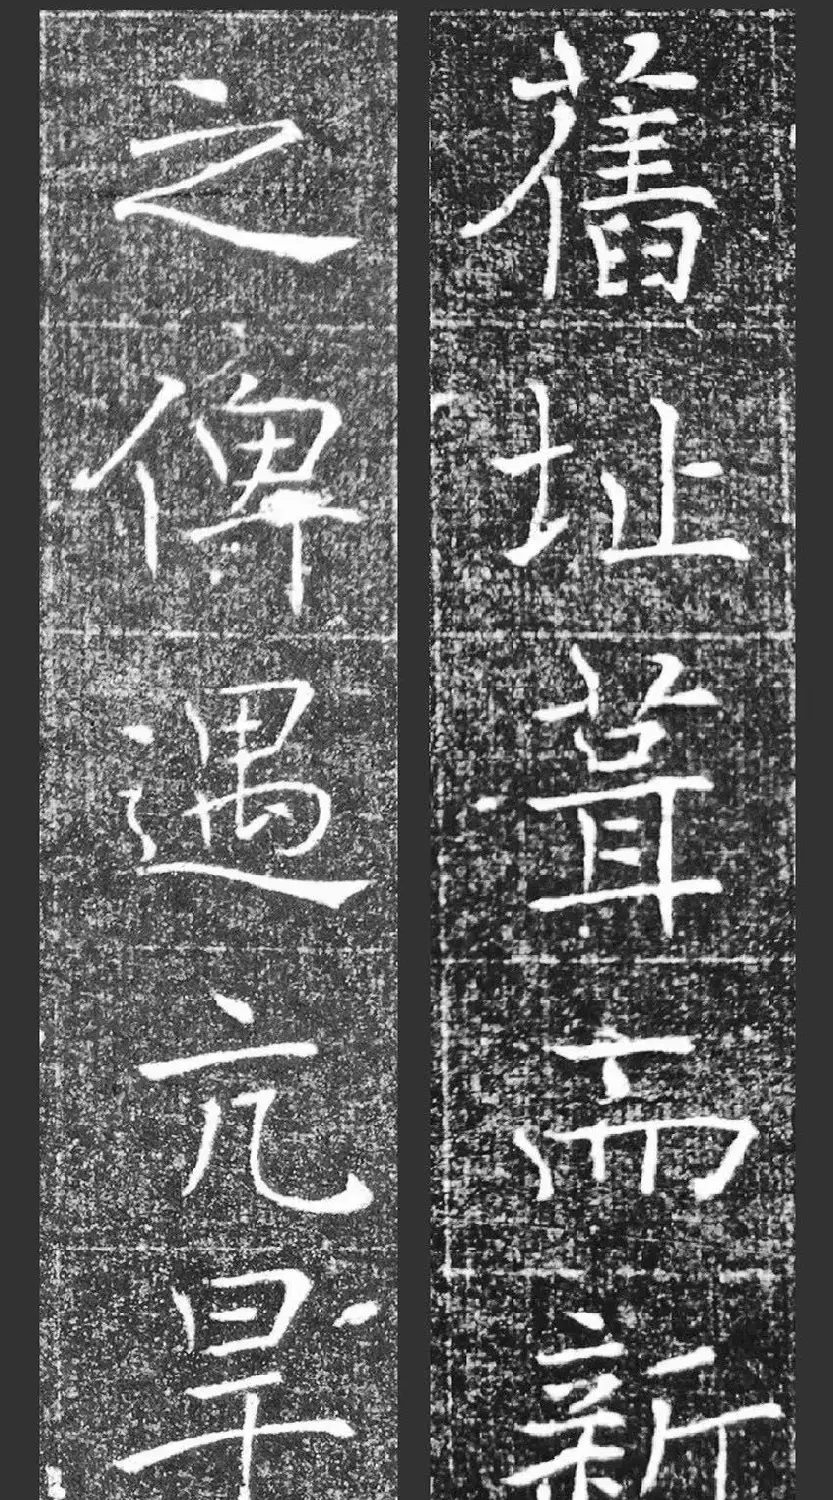 舊址葺而新
之俾遇亢旱